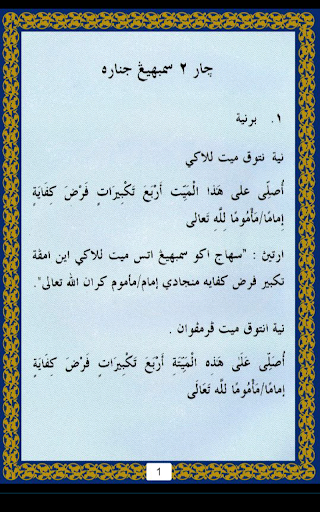 چار ٢ سمبهيڠ جنازه
١. برنية
نية نتوق ميت للاكي
أُصَلِّى عَلى هَذا الْمَيِّت أَرْبَعَ تَكْبِيرَاتٍ فَرْضَ كِفَايَةٍ
إِمامًا/مَأْمُومًا لِلَّهِ تَعالى
ارتيڽ : "سهاج اكو سمبهيڠ اتس ميت للاكي اين امڤة
تكبير فرض كفايه منجادي إمام/مأموم كران الله تعالى".
نية انتوق ميت ڤرمڤوان .
أُصَلِّى عَلَىٰ هَذِهِ الْمَيِّتَةِ أَرْبَعَ تَكْبِيرَاتٍ فَرْضَ كِفَايَةٍ
إمَامًا/مَأْمُومًا للَّهِ تَعَالَى
1